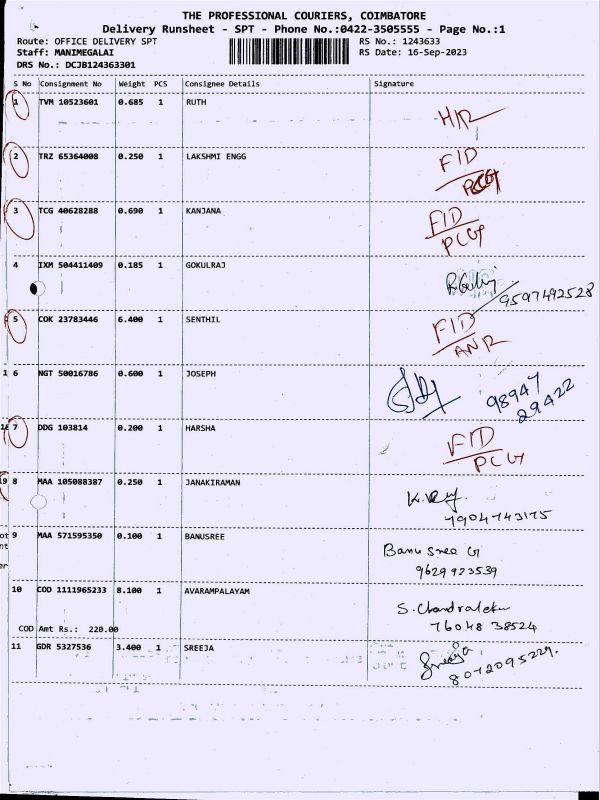 THE PROFESSIONAL COURIERS, COIMBATORE
Delivery Runsheet - SPT - Phone No.:0422-3505555 - Page No.:1
Route: OFFICE DELIVERY SPT RS No.: 1243633
Staff: MANIMEGALAI RS Date: 16-Sep-2023
DRS No.: DCJB124363301
S No Consignment No Weight PCS Consignee Details Signature
1 TVM 10523601 0.685 1 RUTH
2 TRZ 65364008 0.250 1 LAKSHMI ENGG FID
PCG
3 TCG 40628288 0.690 1 KANJANA FID
PCG
4 IXM 504411409 0.185 1 GOKULRAJ
9597492528
5 COK 23783446 6.400 1 SENTHIL FID
ANR
6 NGT 50016786 0.600 1 JOSEPH 98947
29422
7 DDG 103814 0.200 1 HARSHA FID
PCG
8 MAA 105088387 0.250 1 JANAKIRAMAN
7904743175
9 MAA 571595350 0.100 1 BANUSREE Banu sree G
9629923539
10 COD 1111965233 8.100 1 AVARAMPALAYAM
S. Chandraleka
76048 38524
COD Amt Rs.: 220.00
11 GDR 5327536 3.400 1 SREEJA Sreeja
8072095229.